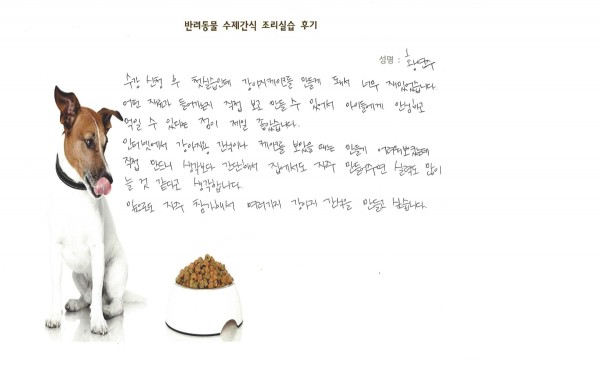 반려동물 수제간식 조리실습 후기
성명 :
수강 신청 후 첫실습인데 강아지케이크를 만들게 되어서 너무 재밌었습니다.
어떤 재료가 들어가는지 직접 보고 만들 수 있어서 아이들에게 안심하고
먹일 수 있다는 점이 제일 좋았습니다.
인터넷에서 강아지용 간식이나 케이크를 보았을 때는 만들기 어려워보였는데
직접 만드니 생각보다 간단해서 집에서도 자주 만들어주면 실력도 많이
늘 것 같다고 생각합니다.
앞으로도 자주 참가해서 여러가지 강아지 간식을 만들고 싶습니다.